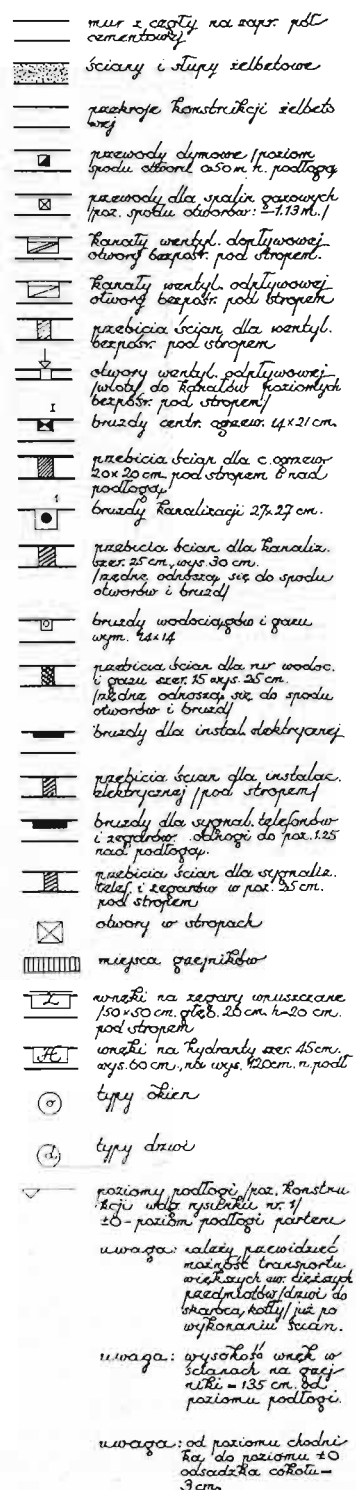 mur z cegły na zapr. pół
cementowej
ściany i słupy żelbetowe
przekroje konstrukcji żelbeto
wej
przewody dymowe /poziom
spodu otworu 0.50 m n. podłogą
przewody dla spalin gazowych
/poz. spodu otworów: -1.13 m./
kanały wentyl. dopływowej
otwory bezpośr. pod stropem.
kanały wentyl. odpływowej
otwory bezpośr. pod stropem
przebicia ścian dla wentyl.
bezpośr. pod stropem
otwory wentyl. odpływowej
/wloty do kanałów poziomych
bezpośr. pod stropem/
I
bruzdy centr. ogrzew. 14×21 cm.
przebicia ścian dla c. ogrzew
20×20 cm. pod stropem i nad
podłogą/
1
bruzdy kanalizacji 27×27 cm.
przebicia ścian dla kanaliz.
szer. 25 cm, wys. 30 cm.
/rzędne odnoszą się do spodu
otworów i bruzd/
bruzdy wodociągów i gazu
wym. 14×14
przebicia ścian dla rur wodoc.
i gazu szer. 15 wys. 25 cm.
/rzędne odnoszą się do spodu
otworów i bruzd/
bruzdy dla instal. elektrycznej
przebicia ścian dla instalac.
elektrycznej /pod stropem/
bruzdy dla sygnal. telefonów
i zegarów. odnogi do poz. 1.25
nad podłogą.
przebicia ścian dla sygnaliz.
telef. i zegarów w poz. 35 cm.
pod stropem
otwory w stropach
miejsca grzejników
Z
wnęki na zegary wpuszczane
/50×50 cm. głęb. 20 cm. h-20 cm.
pod stropem
H
wnęki na hydranty szer. 45 cm.
wys. 60 cm., na wys. 120 cm. n. podł
o
typy okien
d
typy drzwi
poziomy podłogi /poz. konstru
kcji wdg. rysunku nr. 1/
±0 - poziom podłogi parteru
uwaga: należy przewidzieć
możność transportu
większych wzr. cięższych
przedmiotów /drzwi do
skarbca, kotły/ już po
wykonaniu ścian.
uwaga: wysokość wnęk w
ścianach na grzej
niki - 135 cm. od
poziomu podłogi.
uwaga: od poziomu chodni
ka, do poziomu ±0
odsadzka cokołu -
3 cm.